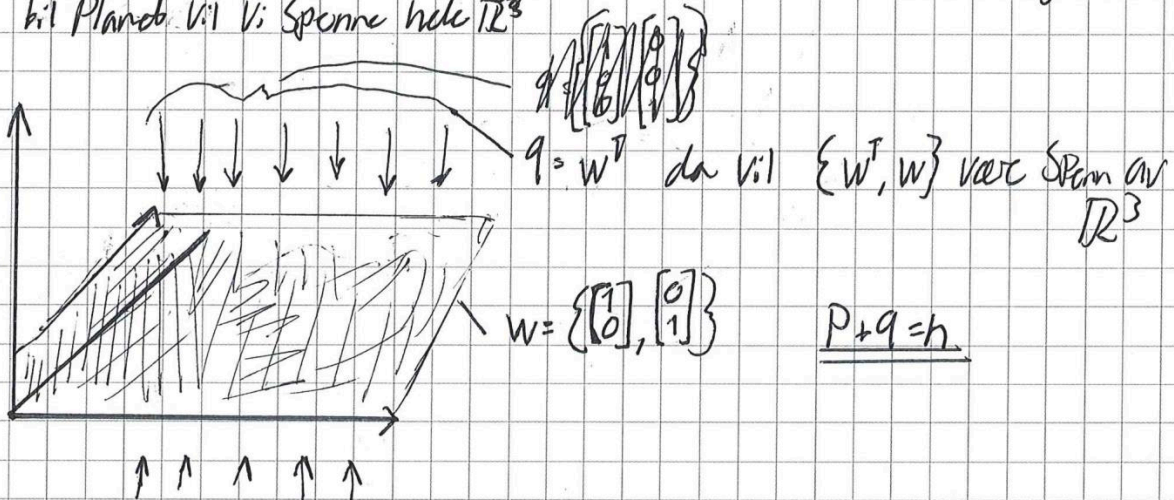 til Planet vil vi Spenne hele ℝ³
q = Wᵀ da vil {Wᵀ, W} være Spenn av
ℝ³
W = {[1 0], [0 1]}
P+q=n